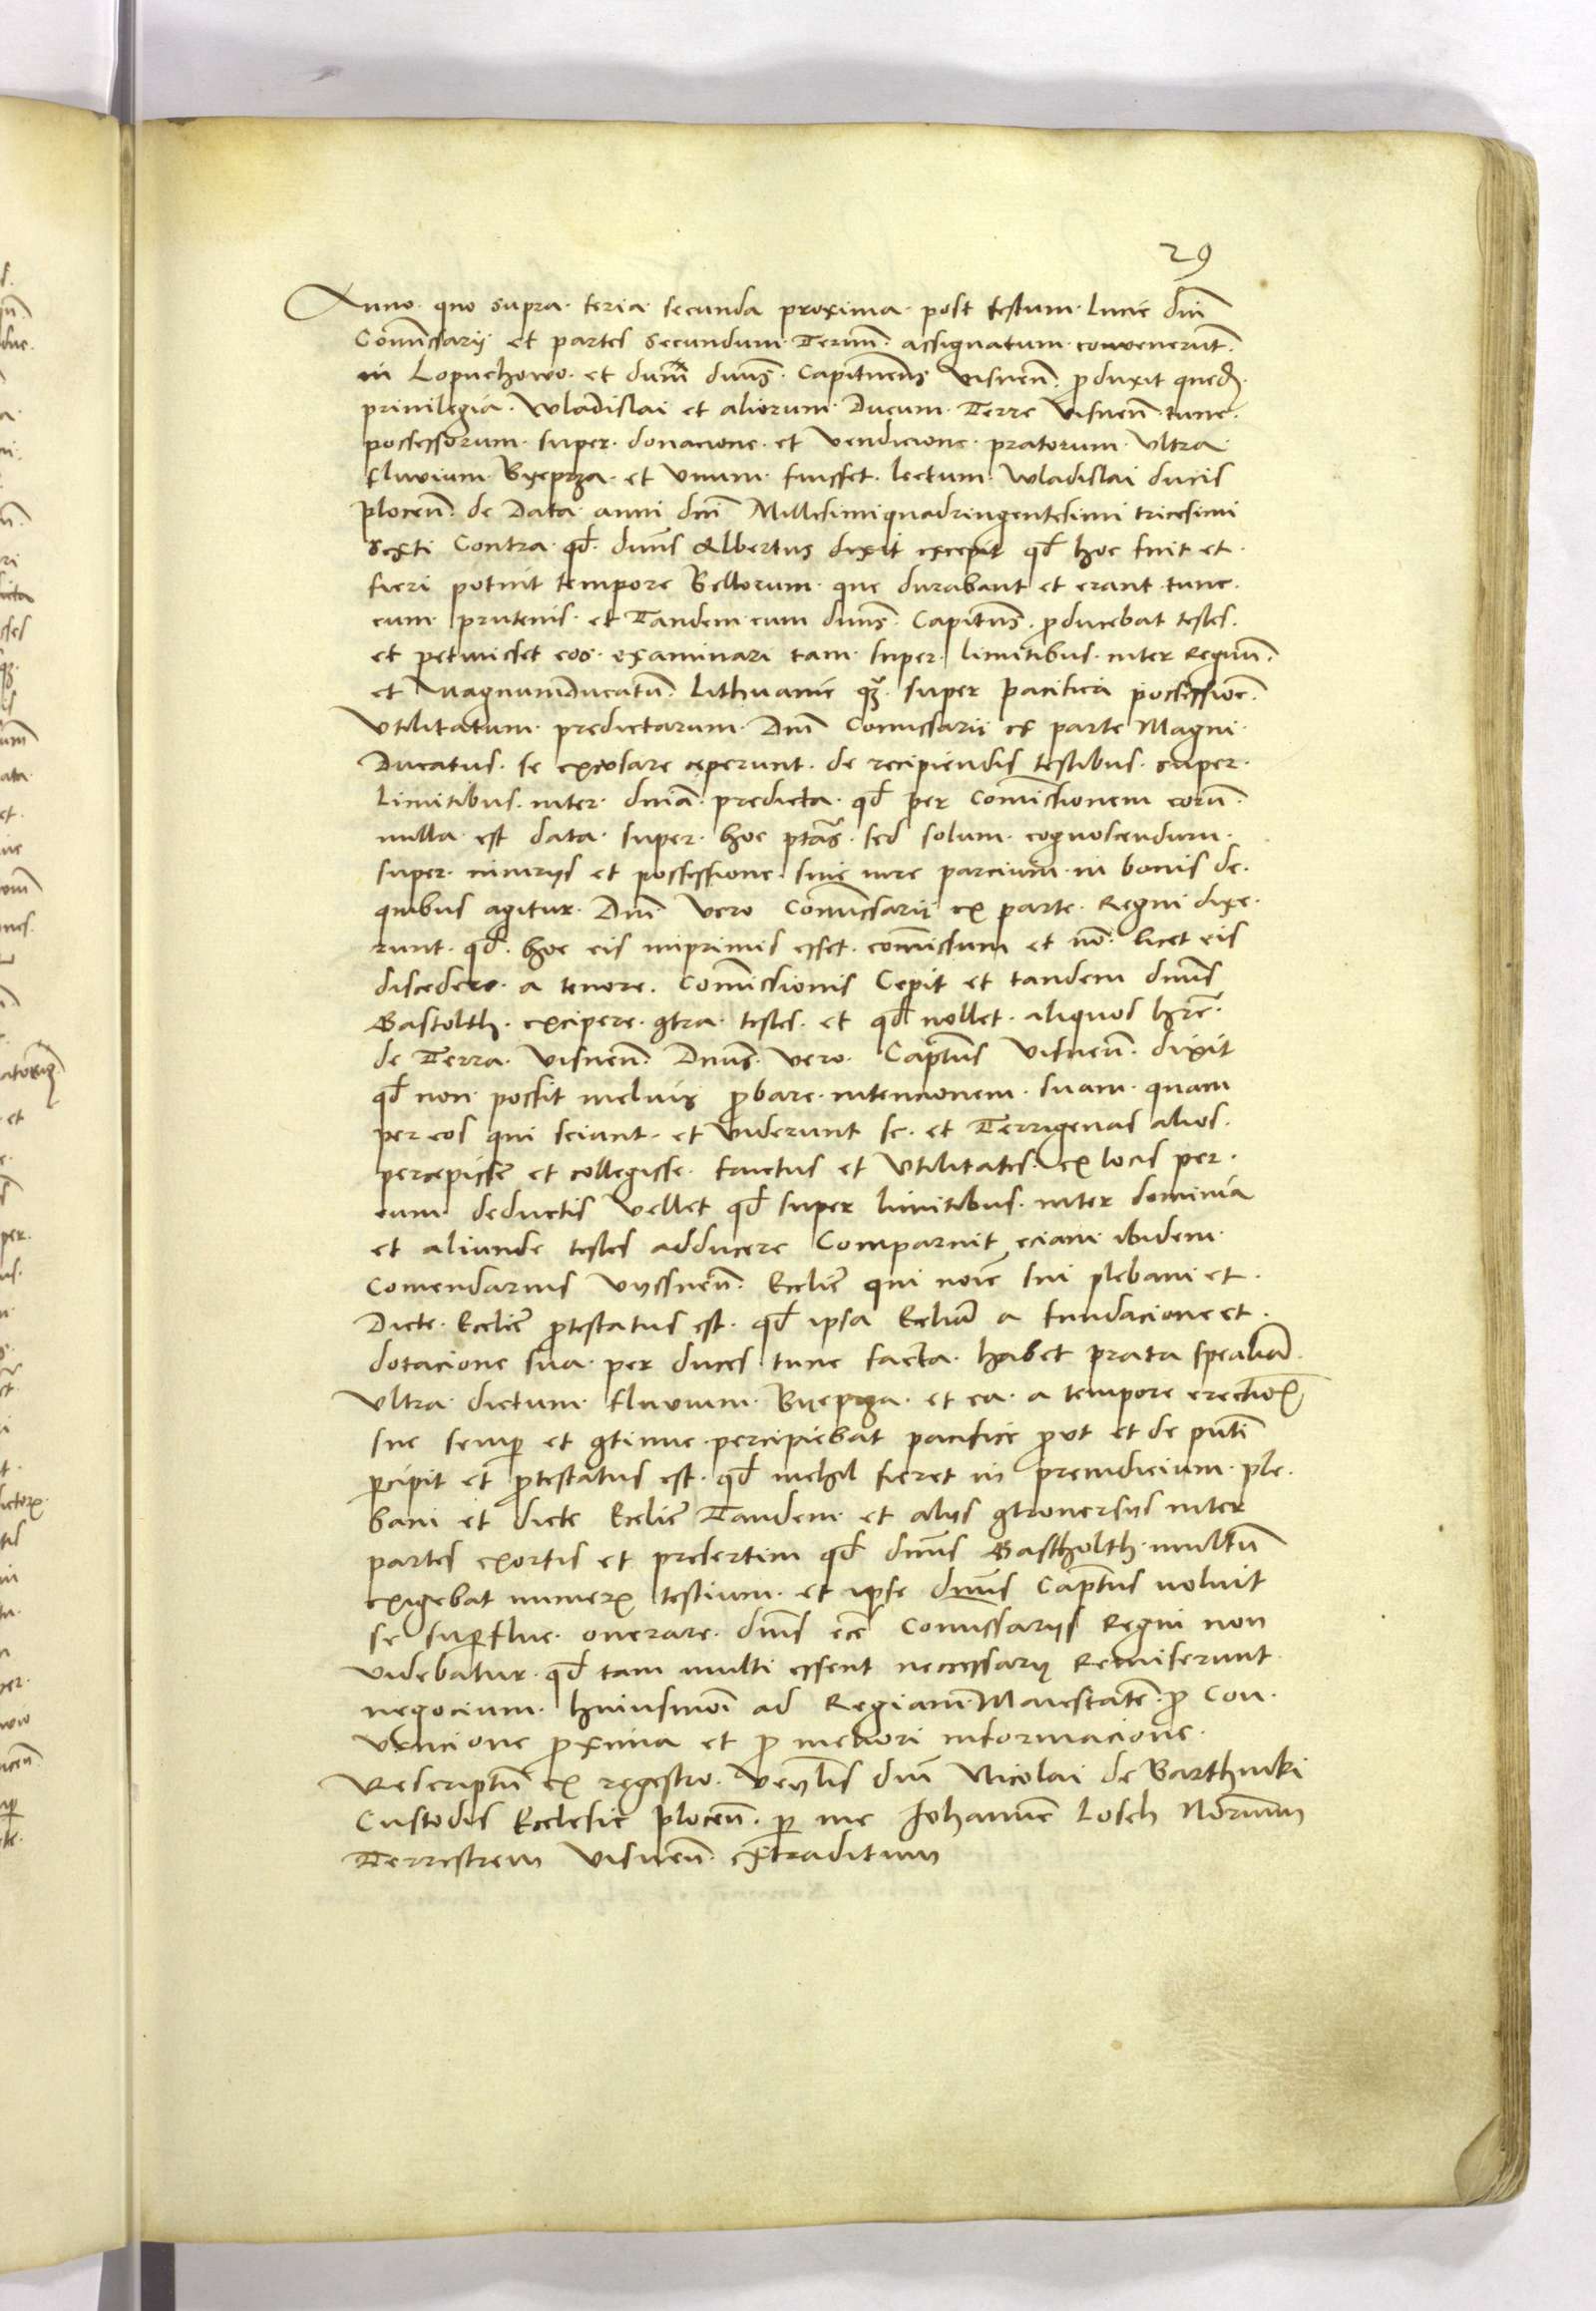 29
Anno. quo supra. feria. secunda proxima. post festum. Lucie dm̄
Com̄issarij et partes secundum. Termin̄. assignatum. convenerūt.
in Lopuchowo. et dum dn̄us. Capitaneus Visnen̄. p̄duxit qued̄.
privilegia. Wladislai et aliorum. Ducum. Terre Visnen̄. tunc.
possessorum. super. donacione. et vendicione. pratorum. ultra.
fluvium. Byeprza. et unum. fuisset. lectum. Wladislai ducis
plocen̄. de Data. anni dn̄i Millesimiquadringentesimi tricesimi
sexti Contra. qd̄. dn̄us Albertus dixit excepit qd̄ hoc fuit et.
fieri potuit tempore Bellorum. que durabant et erant. tunc.
cum. prutenis. et Tandem cum dn̄us. Capitn̄s. p̄ducebat testes.
et petivisset eos. examinari tam. super. limitibus. inter Regnū.
et MagnumDucatū. Lithuanie qz̄. super pacifica possessione.
Utilitatum. predictarum. Dm̄ Comissarii ex parte Magni.
Ducatus. se excusare ceperunt. de recipiendis testibus. super.
Limitibus. inter. dn̄ia. predicta. qd̄ per Comissionem eorū.
nulla. est data. super. hoc ptās. sed solum. cognoscendum.
super. iniuriis et possessione. sive iure parcium. in bonis de.
quibus agitur. Dm̄ vero Com̄issarii ex parte. Regni dixe.
runt. qd̄. hoc eis inprimis esset. com̄issum et nō. licet eis
discedere. a tenore. Com̄issionis Cepit et tandem dn̄us
Gastolth. excipere. 9tra. testes. et qd̄ nollet. aliquos hr̄e.
de Terra. Visnen̄. Dn̄us. vero. Captn̄s Visnen̄. dixit
qd̄ non possit melius p̄bare. intencionem. suam. quam
per eos qui sciunt. et viderunt se. et Terrigenas alios.
percepisse et collegisse. fructus et Utilitates. ex locis per.
eum. deductis Vellet qd̄ super limitibus. inter dominia
et aliunde testes adducere Comparuit eciam ibidem.
Comendarius Vyssnen̄. Ecclie qui noīe sui plebani et.
Dicte. Ecclie p̄testatus est. qd̄ ipsa Ecclia a fundacione et.
dotacione sua. per duces tunc facta. habet prata specialia.
Ultra. dictum. fluvium. Byeprza. et ea. a tempore erectioīs
sue semp̄ et 9tinue percipiebat pacifice p̄ut et de pn̄ti
p̄cipit et p̄testatus est. qd̄ nichil fieret in preiudicium. ple.
bani et dicte Ecclie Tandem. et aliis 9troversiis inter
partes exortis et presertim qd̄ dn̄us Gastholth. multū
exigebat numerū testium. et ipse dn̄us Captn̄us noluit
se sup̄flue. onerare. dn̄is ecē Comissariis Regni non
videbatur. qd̄ tam multi essent necessarij Remiserunt
negocium. huiusmōi ad Regiam. Maiestatē. p̄ Con.
vencione p̄xima et p̄ meliori informacione.
Rescriptū ex regestro. Ven̄lis dn̄i Nicolai de Barthniki
Custodis Ecclesie plocen̄. p̄ me Johannē Losch Norium
Terrestrem Visnen̄. extraditum